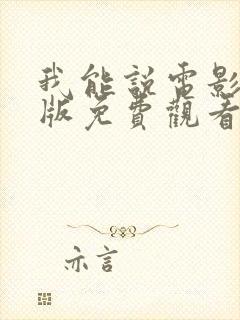 我能說電影
版免費觀看
亦言